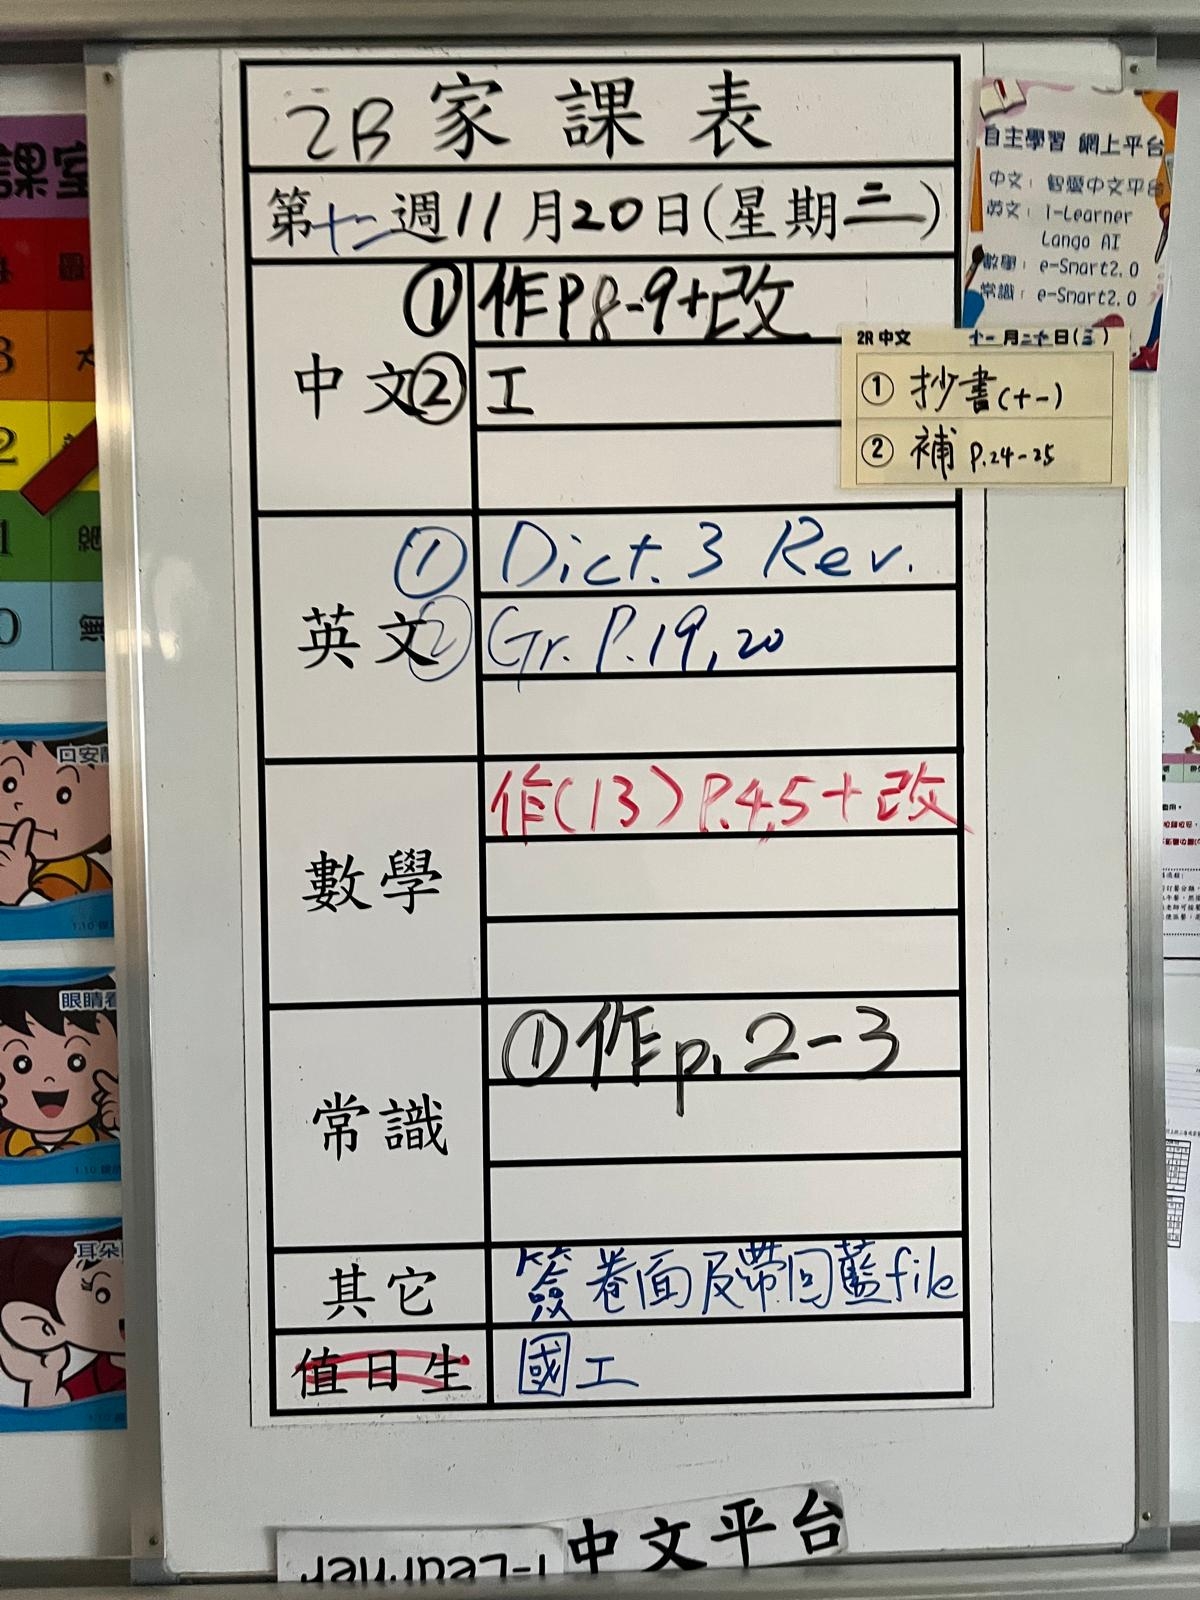 2B 家課表
第十二週11月20日(星期三)
中文
① 作P8-9+改
② 工
英文
① Dict. 3 Rev.
② Gr. P.19,20
數學
作(13) P.4,5+改
常識
① 作p.2-3
其它
簽卷面及帶回藍file
值日生
國工
自主學習 網上平台
中文：智愛中文平台
英文：i-Learner
Lango AI
數學：e-Smart2.0
常識：e-Smart2.0
2R 中文 十一月二十日(三)
① 抄書(十一)
② 補 P.24-25
課室
3
2
1
0
口安靜
1.10
眼睛看
1.10
耳朵
1.10
i-Learner
中文平台